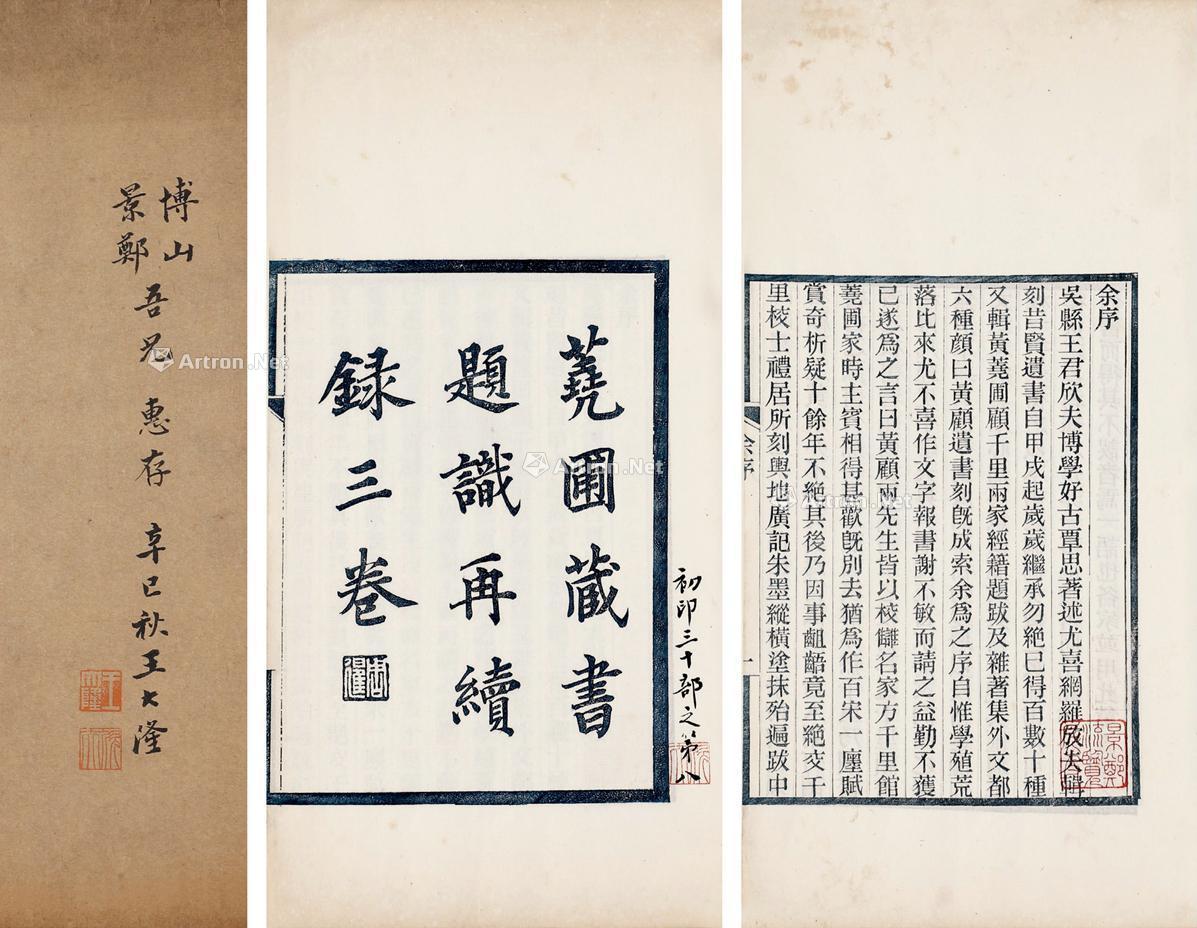 博山
景鄭
吾兄惠存
辛巳秋王大隆
王大隆
欣夫
蕘圃藏書
題識再續
録三卷
初印三十部之第八
余序
吳縣王君欣夫博學好古覃思著述尤喜網羅放失輯
刻昔賢遺書自甲戌起歲歲繼承勿絶已得百數十種
又輯黃蕘圃顧千里兩家經籍題跋及雜著集外文都
六種顔曰黃顧遺書刻旣成索余爲之序自惟學殖荒
落比來尤不喜作文字報書謝不敏而請之益勤不獲
已遂爲之言曰黃顧兩先生皆以校讎名家方千里館
蕘圃家時主賓相得甚歡旣別去猶爲作百宋一廛賦
賞奇析疑十餘年不絶其後乃因事齟齬竟至絶交千
里校士禮居所刻輿地廣記朱墨縱橫塗抹殆遍跋中
余序
一
景鄭
流覽
Artron.Net
Artron.Net
Artron.Net